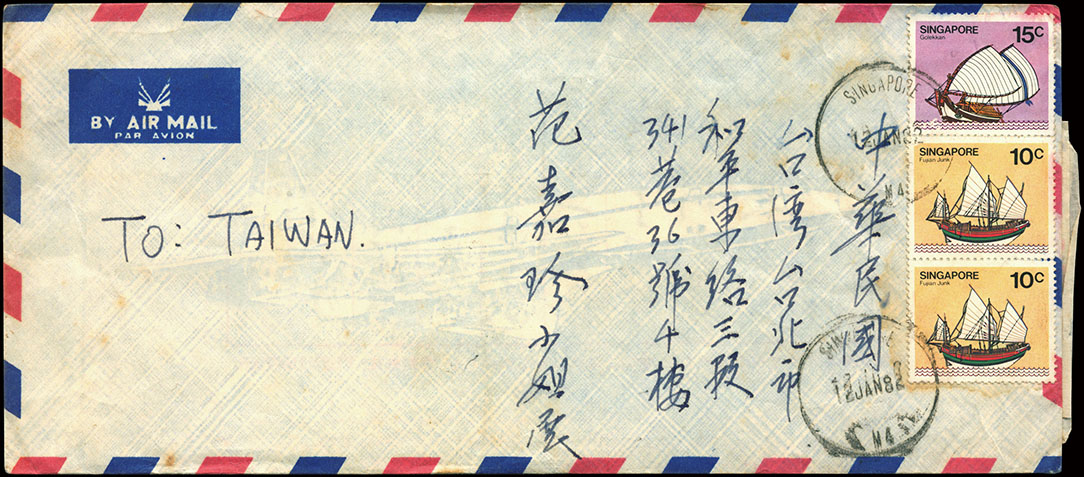 BY AIR MAIL
PAR AVION
TO: TAIWAN.
SINGAPORE 15C
Golekkan
SINGAPORE 10C
Fujian Junk
SINGAPORE 10C
Fujian Junk
SINGAPORE
12JAN82
N4
12JAN82
N4
中華民國
台灣台北市
和平東路三段
341巷36號4樓
范嘉珍小姐展